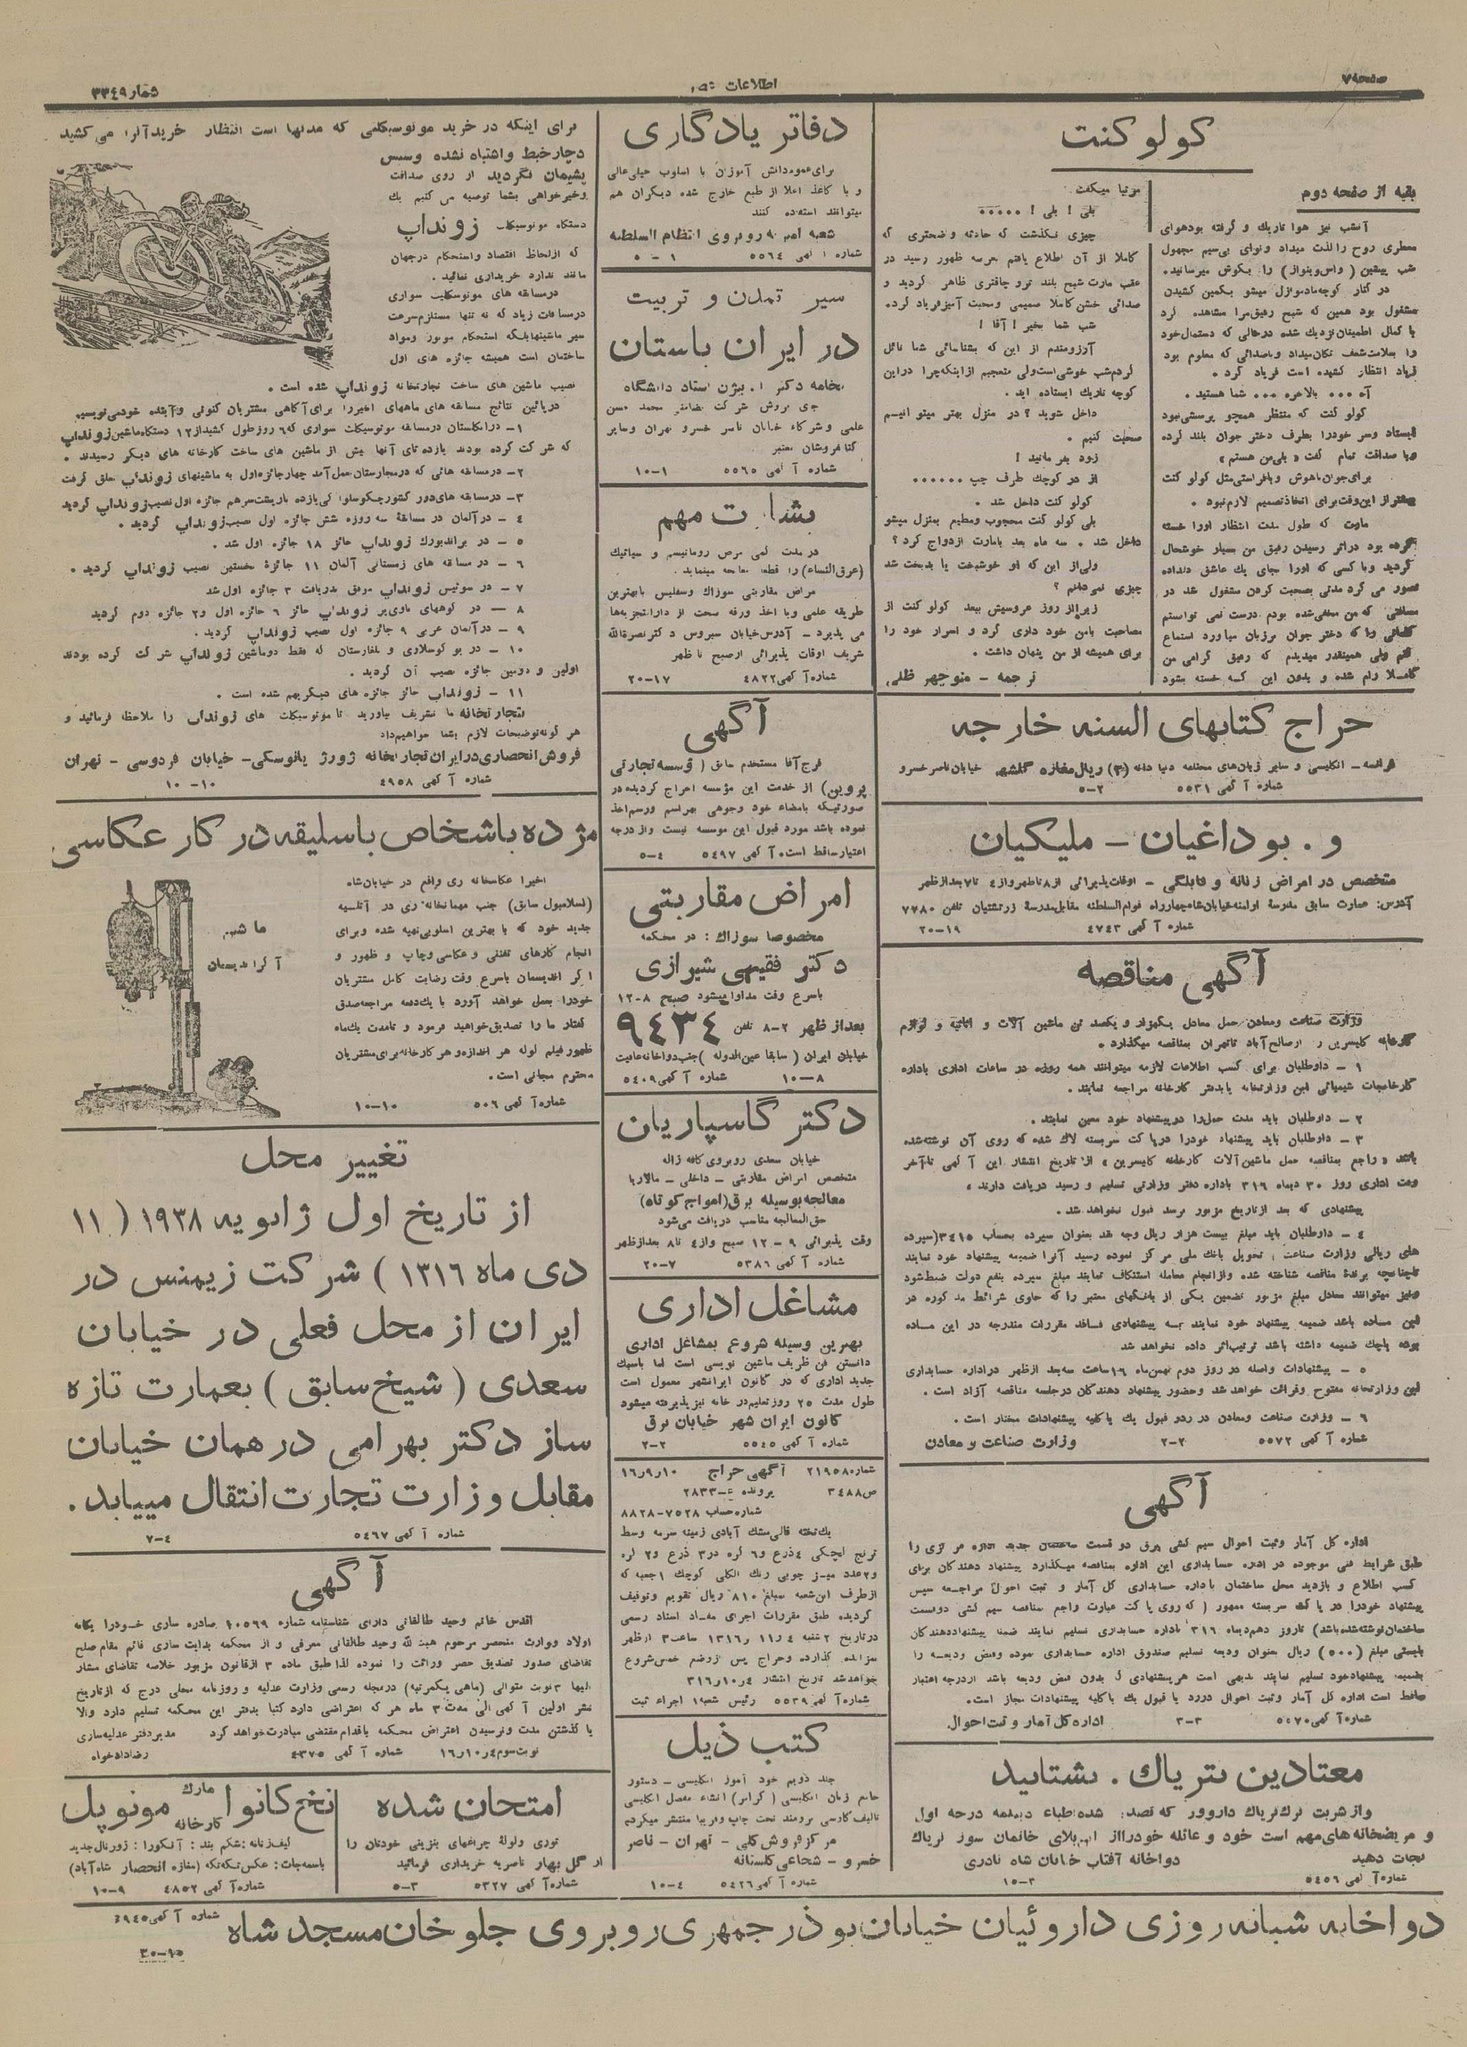 صفحه ۷
اطلاعات
شماره ۳۳٤۹
کولو کنت
بقیه از صفحه دوم
آنشب نیز هوا تاریك و گرفته بود هوای
معطری روح را لذت میداد و نوای بی‌سیم مجهول
در کنار کوچه مادموازل میشو بکمین کشیدن
مشغول بود همین که شبح رفیق مرا مشاهده کرد
با کمال اطمینان نزدیك شده درحالی که دستمال خود
را بعلامت شعف تکان میداد و باصدائی که معلوم بود
زیاد انتظار کشیده است فریاد کرد .
آه ... بالاخره ... شما هستید .
کولو کنت که منتظر همچو پرسشی نبود
ایستاد و سر خود را بطرف دختر جوان بلند کرده
و با صداقت تمام گفت «بلی من هستم»
برای جوان باهوش و با فراستی مثل کولو کنت
بیشتر از این وقت برای اتخاذ تصمیم لازم نبود .
مارت که طول مدت انتظار اورا خسته
کرده بود دراثر رسیدن رفیق من بسیار خوشحال
گردید و با کسی که اورا بجای یك عاشق دلداده
تصور می کرد مدتی بصحبت کردن مشغول شد در
مسافتی که من مخفی شده بودم درست نمی توانستم
کلماتی را که دختر جوان برزبان میاورد استماع
کنم ولی همینقدر میدیدم که رفیق گرامی من
کاملا رام شده و بدون این که خسته بشود
مرتبا میگفت
بلی ! بلی ! .....
چیزی نگذشت که حادثه وضحتری که
کاملا از آن اطلاع یافتم بعرصه ظهور رسید در
عقب مارت شبح بلند تری و چاقتری ظاهر گردید و
صدائی خشن کاملا صمیمی و محبت آمیز فریاد کرد .
شب شما بخیر ! آقا !
آرزومندم از این که بشناسائی شما نائل
کردم شب خوشی است ولی متعجبم از اینکه چرا در این
کوچه تاریك ایستاده اید
داخل شوید ؟ در منزل بهتر میتوانیم
صحبت کنیم .
زود بفرمائید !
از در کوچك طرف چپ ......
کولو کنت داخل شد .
بلی کولو کنت محجوب و مطیع بمنزل میشو
داخل شد . سه ماه بعد با مارت ازدواج کرد ؟
ولی از این که او خوشبخت یا بدبخت شد
چیزی نمی‌دانم ؟
زیرا از روز عروسیش ببعد کولو کنت از
مصاحبت با من خود داری کرد و اسرار خود را
برای همیشه از من پنهان داشت .
ترجمه - منوچهر ظلی
حراج کتابهای السنه خارجه
فرانسه - انگلیسی و سایر زبان‌های مختلفه دنیا دانه (۳) ریال مغازه گلشهر خیابان ناصرخسرو
شماره آگهی ۵۵۳۱ ۲-۵
و . بوداغیان - ملیکیان
متخصص در امراض زنانه و قابلگی - اوقات پذیرائی از ۸ تا ظهر و از ٤ تا ۷ بعدازظهر
آدرس: عمارت سابق مدرسهٔ ارامنه خیابان شاه چهارراه قوام‌السلطنه مقابل مدرسهٔ زرتشتیان تلفن ۷۷۸۰
شماره آگهی ٤۷٤۳ ۱۹-۲۰
آگهی مناقصه
وزارت صناعت و معادن حمل معادل یکهزار و یکصد تن ماشین آلات و اثاثیه و لوازم
کارخانه گلیسیرین را از صالح‌آباد تا تهران بمناقصه میگذارد .
۱ - داوطلبان برای کسب اطلاعات لازمه میتوانند همه روزه در ساعات اداری باداره
کارخانجات شیمیائی این وزارتخانه یا بدفتر کارخانه مراجعه نمایند .
۲ - داوطلبان باید مدت حمل را در پیشنهاد خود معین نمایند .
۳ - داوطلبان باید پیشنهاد خود را در پاکت سربسته لاك شده که روی آن نوشته شده
باشد «راجع بمناقصه حمل ماشین آلات کارخانه گلیسیرین» از تاریخ انتشار این آگهی تا آخر
وقت اداری روز ۳۰ دیماه ۳۱۶ باداره دفتر وزارتی تسلیم و رسید دریافت دارند .
پیشنهادی که بعد از تاریخ مزبور برسد قبول نخواهد شد .
٤ - داوطلبان باید مبلغ بیست هزار ریال وجه نقد بعنوان سپرده بحساب ۳٤۱۵ (سپرده
های ریالی وزارت صناعت) تحویل بانك ملی مرکز نموده رسید آنرا ضمیمه پیشنهاد خود نمایند
چنانچه برنده مناقصه شناخته شده و از انجام معامله استنکاف نمایند مبلغ سپرده بنفع دولت ضبط شود
نیز میتوانند معادل مبلغ مزبور تضمین یکی از بانگهای معتبر را که حاوی شرائط مذکوره در
این ماده باشد ضمیمه پیشنهاد خود نمایند به پیشنهادی فاقد مقررات مندرجه در این ماده
بوده یا چك ضمیمه داشته باشد ترتیب‌اثر داده نخواهد شد
۵ - پیشنهادات واصله در روز دوم بهمن‌ماه ۱۶ ساعت سه بعد از ظهر در اداره حسابداری
این وزارتخانه مفتوح و قرائت خواهد شد و حضور پیشنهاد دهندگان در جلسه مناقصه آزاد است .
۶ - وزارت صناعت و معادن در رد و قبول یك یا کلیه پیشنهادات مختار است .
شماره آگهی ۵۵۷۲ ۲-۲ وزارت صناعت و معادن
آگهی
اداره کل آمار و ثبت احوال سیم کشی برق دو قسمت ساختمان جدید اداره مرکزی را
طبق شرایط فنی موجوده در اداره حسابداری این اداره بمناقصه میگذارد پیشنهاد دهندگان برای
کسب اطلاع و بازدید محل ساختمان باداره حسابداری کل آمار و ثبت احوال مراجعه سپس
پیشنهاد خود را در پاکت سربسته ممهور (که روی پاکت عبارت راجع بمناقصه سیم کشی دو قسمت
ساختمان نوشته شده باشد) تا روز دهم دیماه ۳۱۶ باداره حسابداری تسلیم نمایند ضمنا پیشنهاد دهندگان
بایستی مبلغ (۵۰۰) ریال بعنوان ودیعه تسلیم صندوق اداره حسابداری نموده و قبض ودیعه را
بضمیمه پیشنهاد خود تسلیم نمایند بدیهی است هر پیشنهادی که بدون قبض ودیعه باشد از درجه اعتبار
ساقط است اداره کل آمار و ثبت احوال در رد یا قبول یك یا کلیه پیشنهادات مجاز است .
شماره آگهی ۵۵۷۰ ۳-۳ اداره کل آمار و ثبت احوال
معتادین بتریاك . بشتابید
نجات دهید دواخانه آفتاب خیابان شاه نادری
شماره آگهی ۵٤۵۶ ۳-۱۵
دفاتر یادگاری
برای عموم دانش آموزان با اسلوب خیلی عالی
و با کاغذ اعلا از طبع خارج شده دیگران هم
میتوانند استفاده کنند
شماره آگهی ۵۵۶٤ ۱-۵
سیر تمدن و تربیت
در ایران باستان
بخامه دکتر ا . بیژن استاد دانشگاه
علمی و شرکاء خیابان ناصر خسرو تهران و سایر
کتابفروشان معتبر
شماره آگهی ۵۵۶۵ ۱-۱۰
بشارت مهم
در مدت کمی مرض روماتیسم و سیاتیك
(عرق‌النساء) را قطعا معالجه مینماید .
مراض مقاربتی سوزاك و سفلیس با بهترین
طریقه علمی و با اخذ ورقه صحت از دارالتجزیه‌ها
می پذیرد - آدرس خیابان سیروس دکتر نصرةالله
شریف اوقات پذیرائی از صبح تا ظهر
شماره آگهی ٤۸۲۲ ۱۷-۲۰
آگهی
فرج آقا مستخدم سابق (مؤسسه تجارتی
پروین) از خدمت این مؤسسه اخراج گردیده در
صورتیکه بامضاء خود وجوهی بهر اسم و رسم اخذ
نموده باشد مورد قبول این موسسه نیست و از درجه
اعتبار ساقط است . آگهی ۵٤۹۷ ٤-۵
امراض مقاربتی
مخصوصا سوزاك : در محکمه
دکتر فقیهی شیرازی
باسرع وقت مداوا میشود صبح ۸-۱۲
بعد از ظهر ۲-۸ تلفن ۹٤۳٤
خیابان ایران (سابقا عین‌الدوله) جنب دواخانه عافیت
شماره آگهی ۵٤۰۹ ۸-۱۰
دکتر گاسپاریان
خیابان سعدی روبروی کافه ژاله
متخصص امراض مقاربتی - داخلی - مالاریا
معالجه بوسیله برق (امواج کوتاه)
حق المعالجه مناسب دریافت می‌شود
وقت پذیرائی ۹ - ۱۲ صبح و از ٤ تا ۸ بعدازظهر
شماره آگهی ۵۳۸۶ ۷-۲۰
مشاغل اداری
بهترین وسیله شروع بمشاغل اداری
دانستن فن ظریف ماشین نویسی است اما باسبك
جدید اداری که در کانون ایرانشهر معمول است
طول مدت ۲۵ روز تعلیم در خانه نیز پذیرفته میشود
کانون ایران شهر خیابان برق
شماره آگهی ۵۵٤۵ ۲-۲
شماره ۲۱۹۵۸ آگهی حراج ۱۰ر۹ر۱۶
ص ۳٤۸۸ پرونده ع-۲۸۳۳
شماره حساب ۷۵۲۸-۸۸۲۸
یك تخته قالی مشك آبادی زمینه سرمه وسط
ترنج لچکی ٤ ذرع و ۶ گره در ۳ ذرع و ۲ گره
و ۲ عدد میز چوبی رنگ الکلی کوچك ۱ جعبه که
از طرف این شعبه مبلغ ۸۱۰ ریال تقویم و توقیف
گردیده طبق مقررات اجرای مفاد اسناد رسمی
در تاریخ ۲ شنبه ٤ر۱۱ر۱۳۱۶ ساعت ۳ از ظهر
بمزایده گذارده و حراج پس از رضم خمس شروع
خواهد شد تاریخ انتشار ٤ر۱۰ر۳۱۶
شماره آگهی ۵۵۳۹ رئیس شعبه ۱ اجراء ثبت
کتب ذیل
جلد دویم خود آموز انگلیسی - دستور
جامع زبان انگلیسی (گرامر) انشاء مفصل انگلیسی
تالیف کارسی برومند تحت چاپ و قریبا منتشر میگردد
مرکز فروش کلی - تهران - ناصر
خسرو - شجاعی گلستانه
شماره آگهی ۵٤۲۶ ٤-۱۰
برای اینکه در خرید موتوسیکلتی که مدتها است انتظار خرید آنرا می‌کشید
دچار خبط و اشتباه نشده و سپس
پشیمان نگردید از روی صداقت
و خیرخواهی بشما توصیه می کنیم یك
دستگاه موتوسیکلت زونداپ
که از لحاظ اقتصاد و استحکام در جهان
مانند ندارد خریداری نمائید .
در مسابقه های موتوسیکلت سواری
در مسافات زیاد که نه تنها مستلزم سرعت
سیر ماشینها بلکه استحکام موتور و مواد
ساختمان است همیشه جائزه های اول
نصیب ماشین های ساخت تجارتخانه زونداپ شده است .
در پائین نتائج مسابقه های ماههای اخیر را برای آگاهی مشتریان کنونی و آینده خود می‌نویسیم
۱ - در انگلستان در مسابقه موتوسیکلت سواری که ۶ روز طول کشید از ۱۲ دستگاه ماشین زونداپ
که شرکت کرده بودند یازده تای آنها پیش از ماشین های ساخت کارخانه های دیگر رسیدند .
۲ - در مسابقه هائی که در مجارستان بعمل آمد چهار جائزه اول به ماشینهای زونداپ تعلق گرفت
۳ - در مسابقه های دور کشور چکوسلواکی یازده بار پشت سر هم جائزه اول نصیب زونداپ گردید
٤ - در آلمان در مسابقهٔ سه روزه شش جائزه اول نصیب زونداپ گردید .
۵ - در براندبورك زونداپ حائز ۱۸ جائزه اول شد .
۶ - در مسابقه های زمستانی آلمان ۱۱ جائزهٔ نخستین نصیب زونداپ گردید .
۷ - در سوئیس زونداپ موفق بدریافت ۳ جائزه اول شد
۸ - در کوههای باویر زونداپ حائز ۶ جائزه اول و ۲ جائزه دوم گردید
۹ - در آلمان غربی ۹ جائزه اول نصیب زونداپ گردید .
۱۰ - در یوگوسلاوی و بلغارستان که فقط دو ماشین زونداپ شرکت کرده بودند
اولین و دومین جائزه نصیب آن گردید .
۱۱ - زونداپ حائز جائزه های دیگری هم شده است .
بتجارتخانه ما تشریف بیاورید تا موتوسیکلت های زونداپ را ملاحظه فرمائید و
هر گونه توضیحات لازم بشما خواهیم داد
فروش انحصاری در ایران تجارتخانه ژورژ یانوسکی - خیابان فردوسی - تهران
شماره آگهی ٤۹۵۸ ۱۰-۱۰
مژده باشخاص باسلیقه در کار عکاسی
اخیرا عکاسخانه ری واقع در خیابان شاه
(اسلامبول سابق) جنب مهمانخانه ری در آتلیه
جدید خود که با بهترین اسلوبی تهیه شده و برای
انجام کارهای تفننی و عکاسی و چاپ و ظهور و
اگراندیسمان باسرع وقت رضایت کامل مشتریان
خود را بعمل خواهد آورد با یك دفعه مراجعه صدق
گفتار ما را تصدیق خواهید فرمود و تا مدت یك ماه
ظهور فیلم لوله هر اندازه و هر کارخانه برای مشتریان
محترم مجانی است .
شماره آگهی ۵۰۶ ۱۰-۱۰
ماشین
آگراندیسمان
تغییر محل
از تاریخ اول ژانویه ۱۹۳۸ (۱۱
دی ماه ۱۳۱۶) شرکت زیمنس در
ایران از محل فعلی در خیابان
سعدی (شیخ سابق) بعمارت تازه
ساز دکتر بهرامی در همان خیابان
مقابل وزارت تجارت انتقال مییابد .
شماره آگهی ۵٤۶۷ ٤-۷
آگهی
اقدس خانم وحید طالقانی دارای شناسنامه شماره ۱۰۵۶۹ صادره ساری خود را یگانه
اولاد و وارث منحصر مرحوم هبةالله وحید طالقانی معرفی و از محکمه بدایت ساری قائم مقام صلح
تقاضای صدور تصدیق حصر وراثت را نموده لذا طبق ماده ۳ از قانون مزبور خلاصه تقاضای مشار
الیها ۳ نوبت متوالی (ماهی یکمرتبه) در مجله رسمی وزارت عدلیه و روزنامه محلی درج که از تاریخ
نشر اولین آگهی الی مدت ۳ ماه هر که اعتراضی دارد کتبا بدفتر این محکمه تسلیم دارد والا
با گذشتن مدت و نرسیدن اعتراض محکمه باقدام مقتضی مبادرت خواهد کرد مدیر دفتر عدلیه ساری
نوبت سوم ٤ر۱۰ر۱۶ شماره آگهی ٤۳۷۵ رضا دادخواه
امتحان شده
توری و لوله چراغهای بنزینی خودتان را
از گل بهار ناصریه خریداری فرمائید
شماره آگهی ۵۳۲۷ ۳-۵
نخ کانوا مارك کارخانه مونوپل
شماره آگهی ٤۸۵۲ ۹-۱۰
دواخانه شبانه روزی داروئیان خیابان بوذرجمهری روبروی جلوخان مسجد شاه
شماره آگهی ٤۹٤۵
۱۵-۳۰